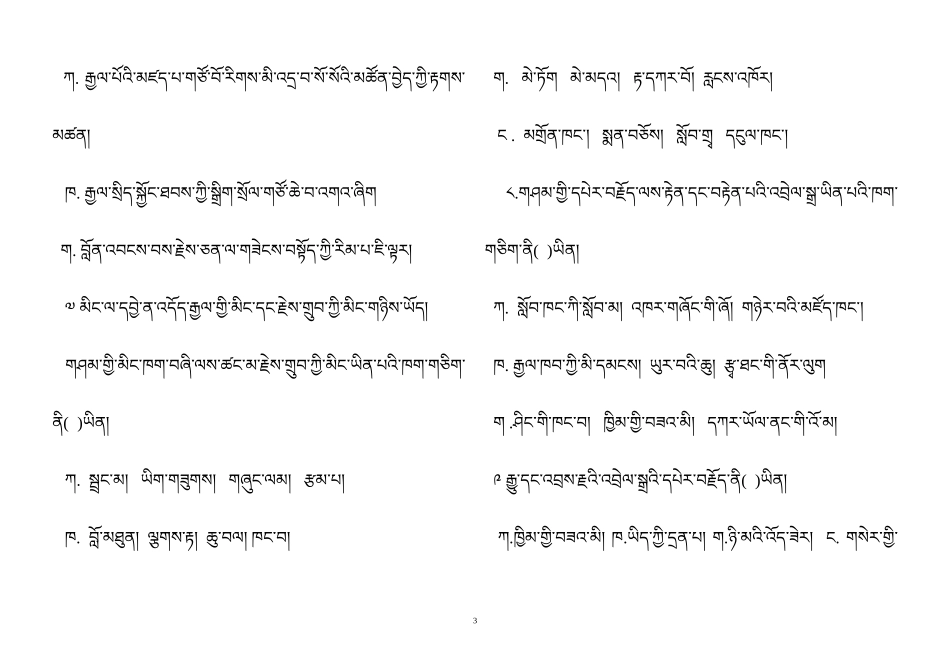 ཀ. རྒྱལ་པོའི་མཛད་པ་གཙོ་བོ་རིགས་མི་འདྲ་བ་སོ་སོའི་མཚོན་བྱེད་ཀྱི་རྟགས་
མཚན།
ཁ. རྒྱལ་སྲིད་སྐྱོང་ཐབས་ཀྱི་སྒྲིག་སྲོལ་གཙོ་ཆེ་བ་འགའ་ཞིག
ག. བློན་འབངས་བས་རྗེས་ཅན་ལ་གཟེངས་བསྟོད་ཀྱི་རིམ་པ་ཇི་ལྟར།
༧ མིང་ལ་དབྱེ་ན་འདོད་རྒྱལ་གྱི་མིང་དང་རྗེས་གྲུབ་ཀྱི་མིང་གཉིས་ཡོད།
གཤམ་གྱི་མིང་ཁག་བཞི་ལས་ཚང་མ་རྗེས་གྲུབ་ཀྱི་མིང་ཡིན་པའི་ཁག་གཅིག་
ནི( )ཡིན།
ཀ. སྦྲང་མ། ཡིག་གཟུགས། གཞུང་ལམ། རྩམ་པ།
ཁ. བློ་མཐུན། ལྕགས་རྟ། ཆུ་བལ། ཁང་བ།
ག. མེ་ཏོག མེ་མདའ། རྟ་དཀར་བོ། རླངས་འཁོར།
ང . མགྲོན་ཁང་། སྨན་བཅོས། སློབ་གྲྭ དངུལ་ཁང་།
༨.གཤམ་གྱི་དཔེར་བརྗོད་ལས་རྟེན་དང་བརྟེན་པའི་འབྲེལ་སྒྲ་ཡིན་པའི་ཁག་
གཅིག་ནི( )ཡིན།
ཀ. སློབ་ཁང་ཀི་སློབ་མ། འཁར་གཞོང་གི་ཞོ། གཉེར་བའི་མཛོད་ཁང་།
ཁ. རྒྱལ་ཁབ་ཀྱི་མི་དམངས། ཡུར་བའི་ཆུ། རྩྭ་ཐང་གི་ནོར་ལུག
ག .ཤིང་གི་ཁང་བ། ཁྱིམ་གྱི་བཟའ་མི། དཀར་ཡོལ་ནང་གི་འོ་མ།
༩ རྒྱུ་དང་འབྲས་རྫའི་འབྲེལ་སྒྲའི་དཔེར་བརྗོད་ནི( )ཡིན།
ཀ.ཁྱིམ་གྱི་བཟའ་མི། ཁ.ཡིད་ཀྱི་དྲན་པ། ག.ཉི་མའི་འོད་ཟེར། ང. གསེར་གྱི་
3